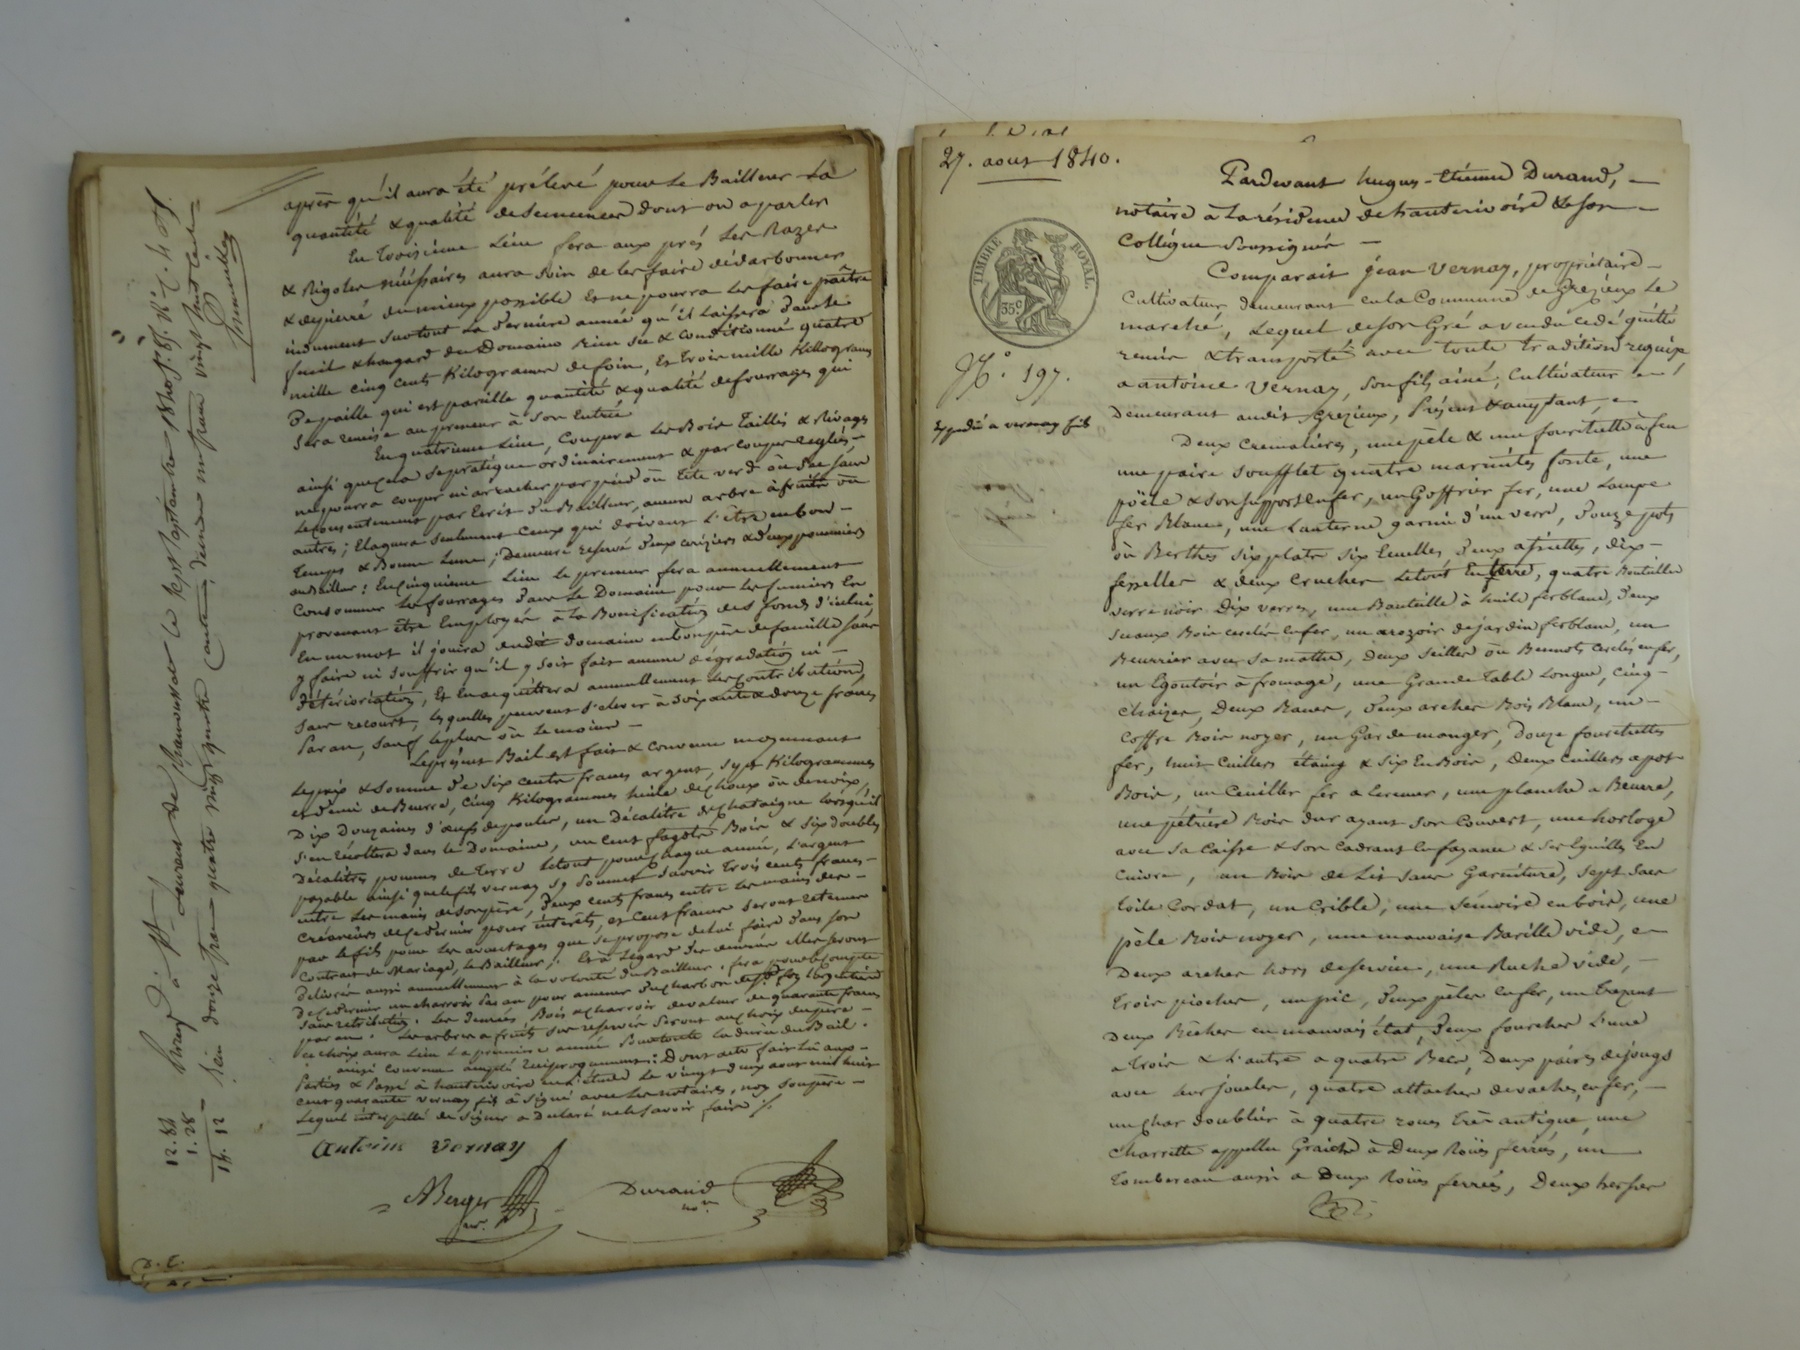 après qu'il aura été prélevé pour le Bailleur la
quantité & qualité de semences dont on a parler
En troisième lieu fera aux prés les Razes
& Rigoles nécessaires aura soin de les faire dédarbonner
& depierré du mieux possible Et ne pourra les faire paître
indument surtout la dernière année qu'il laissera dans le
fenil & hangard du Domaine rien sec & conditionné quatre
mille cinq cents Kilogrames de foin, Et trois mille Killograms
De paille qui est pareille quantité & qualité de fourrages qui
sera remise au preneur à son Entrée
En quatrième Lieu, Coupera les Bois Taillés & Rivages
ainsi que cela se pratique ordinairement & par coupes reglés –
ne pourra couper ni arracher par pied où tête verd où sec sans
le consentement par Ecrit du Bailleur, aucun arbre à fruits où
autres; Elaguera seulement Ceux qui doivent l'être en bon –
temps & Bonne Lune; Demeure reservé deux cerisiers & deux pommiers
au Bailleur: En cinquième Lieu le preneur fera annuellement
Consommer les fourrages dans le Domaine pour les fumiers En
provenant être Employés à la Bonification des fonds d'icelui,
En un mot il jouira dudit domaine en bon père de famille sans
y faire ni souffrir qu'il y soit fait aucune dégradation ni –
détérioriation, Et En acquittera annuellement les contributions,
sans recourt, lesquelles peuvent s'elever à soixante & douze francs
Par an, sauf le plus où le moins –
Le présent Bail est fait & Convenu moyennant
le prix & Somme de six cents francs argent, sept Kilogrammes
et demi de Beurre, Cinq Kilogrammes huile de choux où de noix,
Dix Douzaines d'œufs de poules, un Décalitre de chataigne lorsqu'il
s'en récoltera dans le Domaine, un cent fagots Bois & six doubles
Décalitres pommes de terre le tout pour chaque année, L'argent
payable ainsi que le fils vernay s'y soumet savoir trois cents francs –
entre les mains de son père, deux cents francs entre les mains des –
Créanciers de ce dernier pour intérêts, et Cent francs seront retenus
par le fils pour les avantages que se propose de lui faire dans son
Contrat de Mariage, le Bailleur; Et à L'égard des denrées Elles seront
delivrés aussi annuellement à la volonté du Bailleur, fera pour le compte
De ce dernier un charroir par an pour amener du charbon
sans retribution. Les denrées Bois & charroir de valeur de quarante francs
par an. Les arbres à fruits sus reservés seront au choix du père –
ce choix aura lieu la première année Pour toute la durée du Bail.
ainsi Convenu accepté Reciproquement: Dont acte fait lû aux –
Parties & Passé à hauterivoire en L'étude le vingt deux aout mil huit
cent quarante vernay fils à signé avec les notaires, non son père –
Lequel interpellé de signer a Déclaré ne le savoir faire ./.
Antoine Vernay
ABerger
nre.
Durand
no.re
27. aout 1840.
TIMBRE ROYAL.
35c.
No. 197.
Expédié a vernay fils
Pardevant hugues-Etienne Durand, –
notaire à La résidence de hauterivoire & Son –
Collégue Soussignés –
Comparait jean Vernay, propriétaire –
Cultivateur, demeurant en la Commune de Grezieux Le
marché, Lequel de son Gré a vendu cedé quitté
remis & transporté avec toute tradition requise
a antoine Vernay, son fils ainé; Cultivateur –
Demeurant audit Grezieux, Présent & acceptant, –
Deux cremalières, une pèle & une fourchette à feu
une paire soufflet quatre marmites fonte, une
pöele & son support en fer, un Goffrier fer, une Lampe
fer Blanc, une Lanterne garni d'un verre, douze pots
où Berthes six plats six Ecuelles deux assiettes, dix –
fesselles & deux Cruches le tout En terre, quatre Bouteilles
verre noir Dix verres, une Bouteille à huile ferblanc, Deux
Sceaux Bois cerclés en fer, un arozoir de jardin ferblanc, un
Beurrier avec sa matte, Deux seilles où Bennots cerclés en fer,
un Egoutoir à fromage, une Grande table longue, cinq –
chaizes, Deux Bancs, Deux arches Bois Blanc, un –
Coffre Bois noyer, un Garde manger, Douze fourchettes
fer, huit Cuillers étaing & six En Bois, Deux Cuillers a pot
Bois, un Cuiller fer a Ecumer, une planche a Beurre,
une pétrière Bois dur ayant son Couvert, une horloge
avec sa Caisse & son Cadrant En fayance & ses Eguilles En
Cuivre, un Bois de Lit sans Garniture, Sept Sacs
toile Cordat, un Crible, une Sémoire en bois, une
pèle Bois noyer, une mauvaise Barille vide, –
Deux arches hors de service, une Ruche vide, –
trois pioches, un pic, deux pèles en fer, un trezent
Deux Bêches en mauvais état, Deux fourches L'une
a trois & L'autre a quatre Becs, Deux paires de jougs
avec leurs joucles, quatre attaches de vaches en fer, –
un char doublier à quatre roues très antique, une
Charrette appellée Graiche à Deux Roües ferrés, un
Tombereau aussi a Deux Roües ferrés, Deux herses